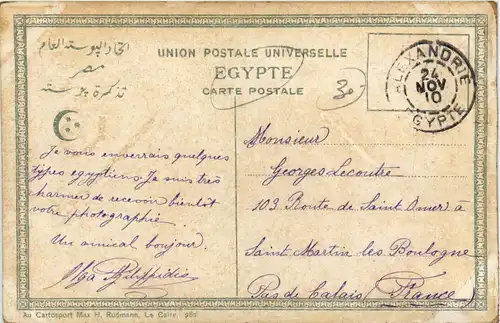 اتحاد البوستة العام
مصر
تذكرة بوستة
UNION POSTALE UNIVERSELLE
EGYPTE
CARTE POSTALE
ALEXANDRIE
24
NOV
10
EGYPTE
30
Je vous enverrais quelques
types egyptiens. Je suis très
charmée de recevoir bientôt
votre photographie.
Un amical bonjour.
Monsieur
Georges Lecoutre
103 Route de Saint Omer à
Saint Martin les Boulogne
Pas de Calais (France)
Au Cartosport Max H. Rudmann, Le Caire